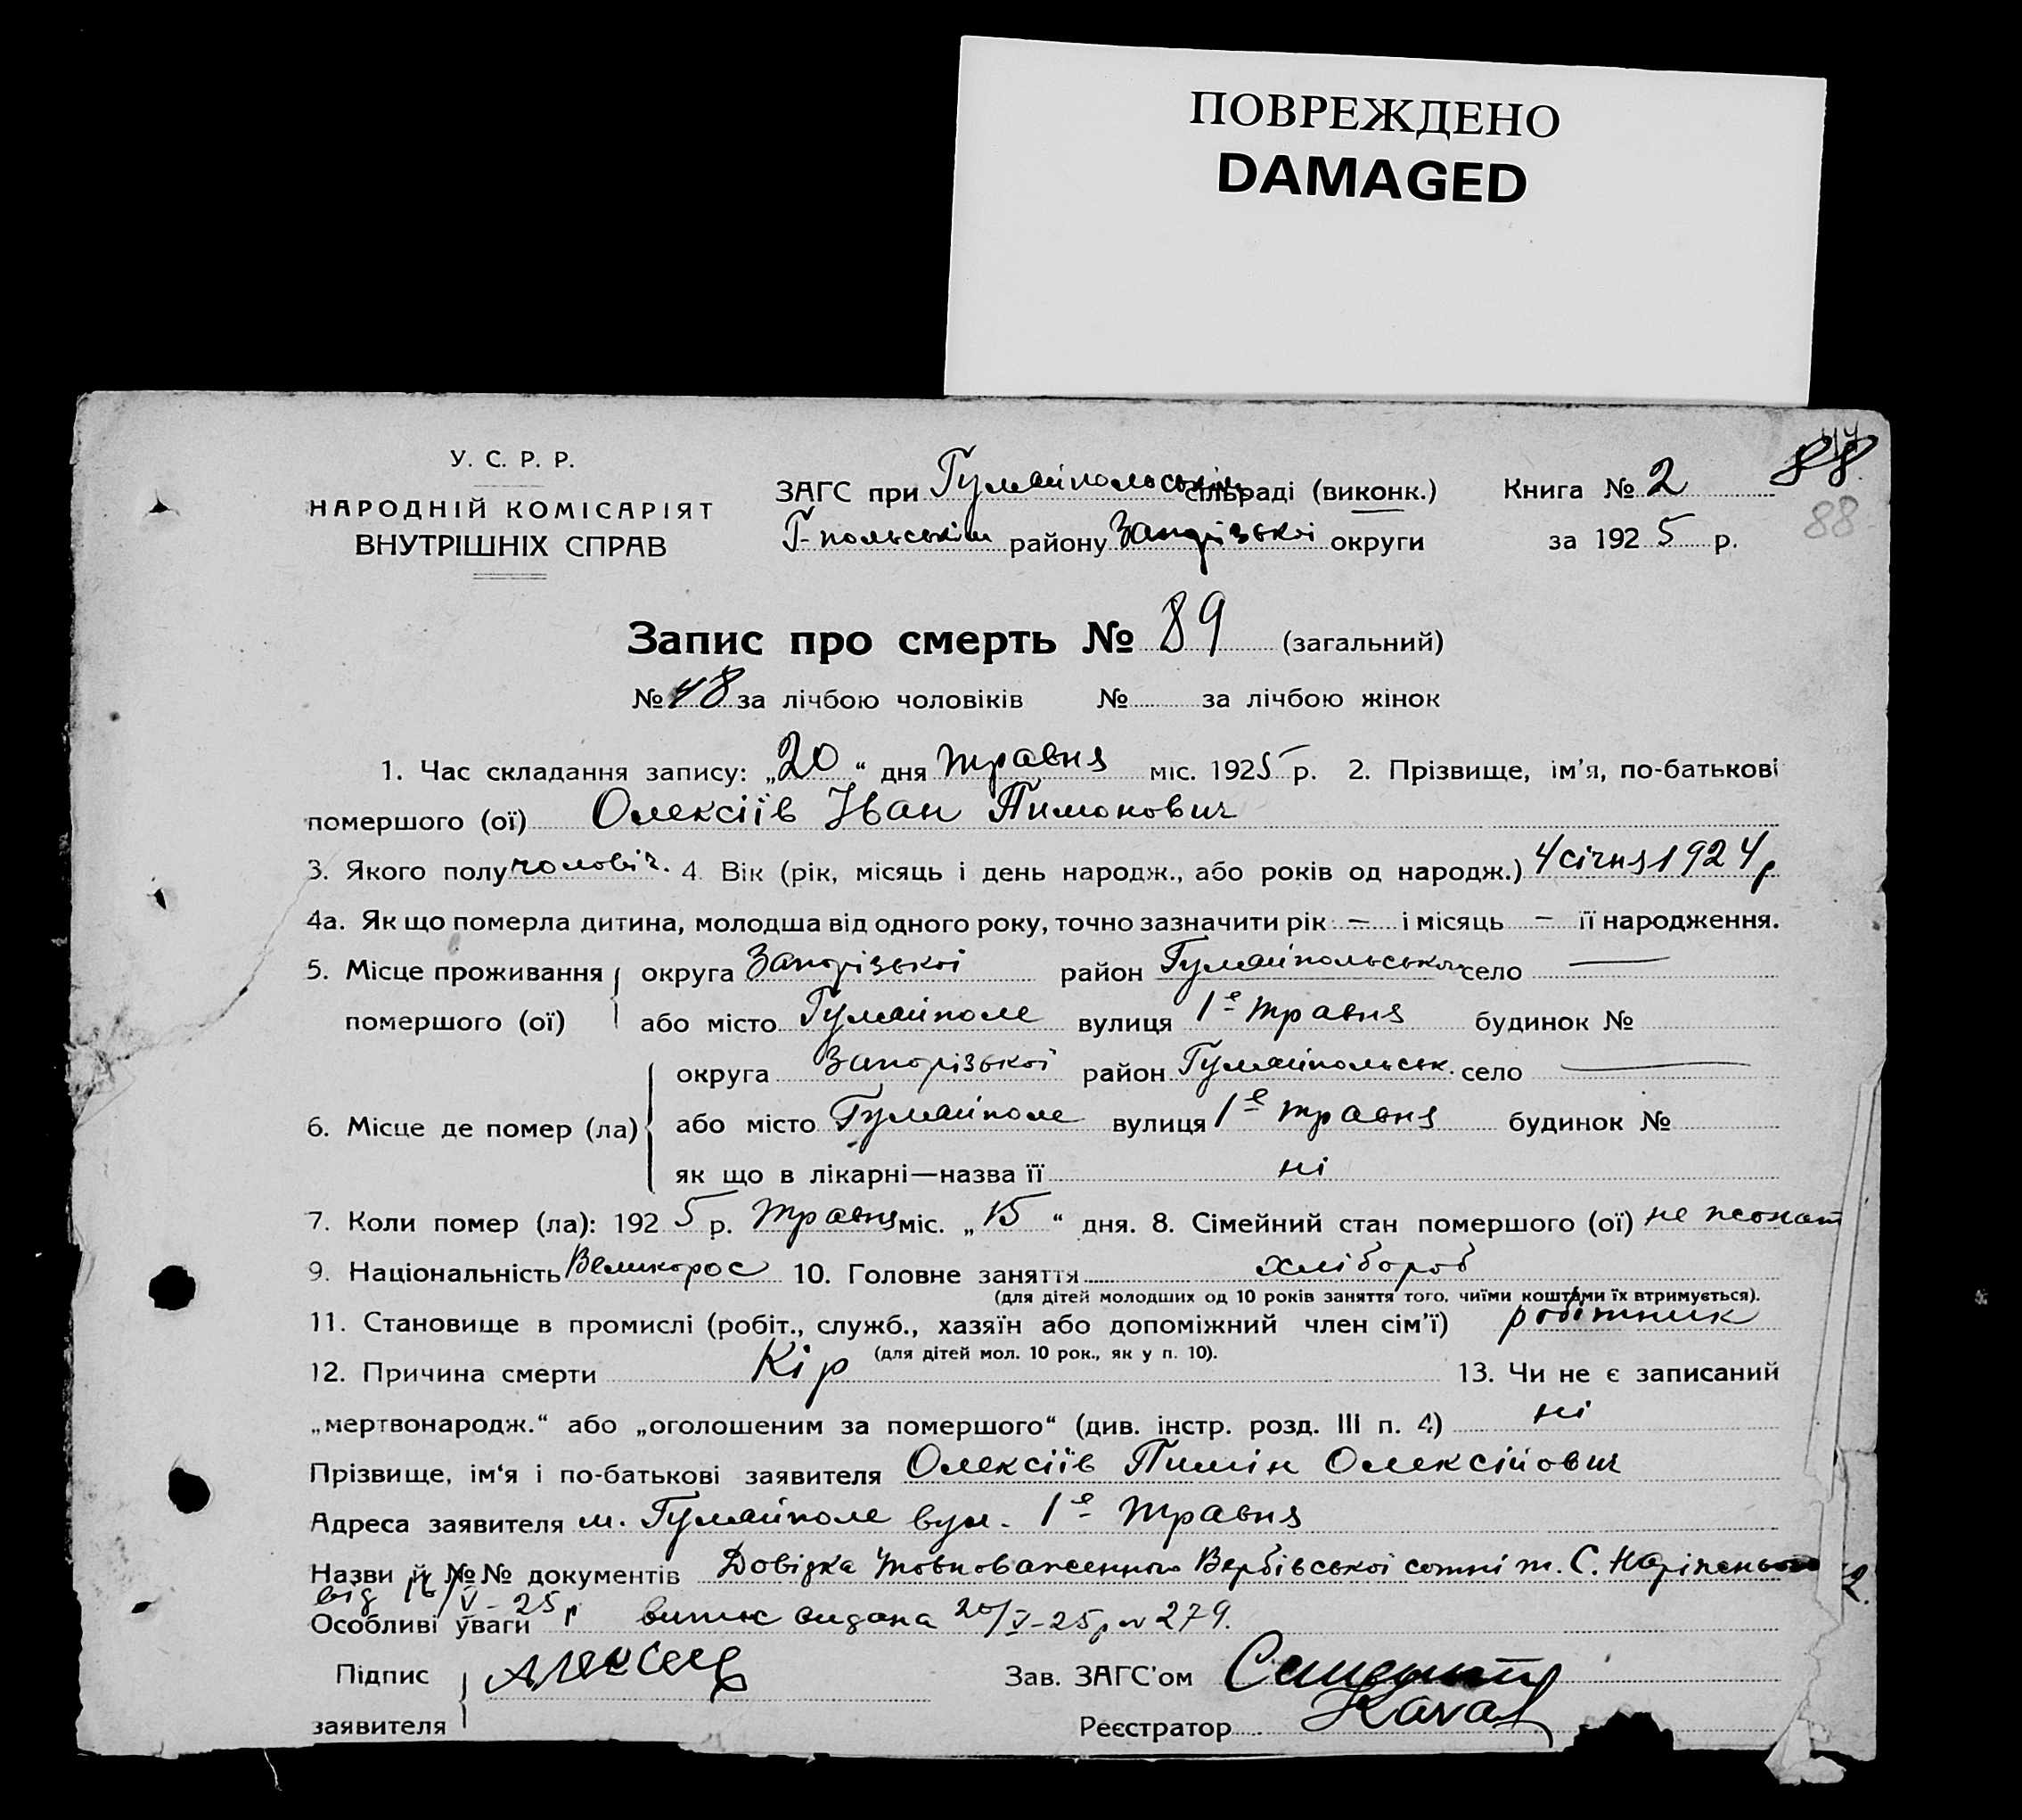 ПОВРЕЖДЕНО
DAMAGED
88
88
У. С. Р. Р.
НАРОДНІЙ КОМІСАРІЯТ
ВНУТРІШНІХ СПРАВ
ЗАГС при Гуляйпольськім сільраді (виконк.) Книга № 2
Г-польськім району Запорізької округи за 1925 р.
Запис про смерть № 89 (загальний)
№ 48 за лічбою чоловіків № за лічбою жінок
1. Час складання запису: „20“ дня травня міс. 1925 р. 2. Прізвище, ім’я, по-батькові
помершого (ої) Олексіїв Іван Пимонович
3. Якого полу чоловіч. 4. Вік (рік, місяць і день народж., або років од народж.) 4 січня 1924 р
4а. Як що померла дитина, молодша від одного року, точно зазначити рік — і місяць — її народження.
5. Місце проживання помершого (ої) округа Запорізької район Гуляйпольського село —
або місто Гуляйполе вулиця 1е травня будинок №
6. Місце де помер (ла) округа Запорізької район Гуляйпольськ. село —
або місто Гуляйполе вулиця 1е травня будинок №
як що в лікарні—назва її ні
7. Коли помер (ла): 1925 р. травня міс. „15“ дня. 8. Сімейний стан помершого (ої) не жонат
9. Національність Великорос 10. Головне заняття хлібороб
(для дітей молодших од 10 років заняття того, чиїми коштами їх втримується).
11. Становище в промислі (робіт., служб., хазяїн або допоміжний член сім’ї) робітник
(для дітей мол. 10 рок., як у п. 10).
12. Причина смерти Кір 13. Чи не є записаний
„мертвонародж.“ або „оголошеним за помершого“ (див. інстр. розд. III п. 4) ні
Прізвище, ім‘я і по-батькові заявителя Олексіїв Пимін Олексійович
Адреса заявителя м. Гуляйполе вул. 1е Травня
Назви й №№ документів Довідка Вербівської сотні т. С.
від 16/V-25 р
Особливі уваги витяг видана 20/V-25 р № 279.
Підпис заявителя
Зав. ЗАГС’ом
Реєстратор